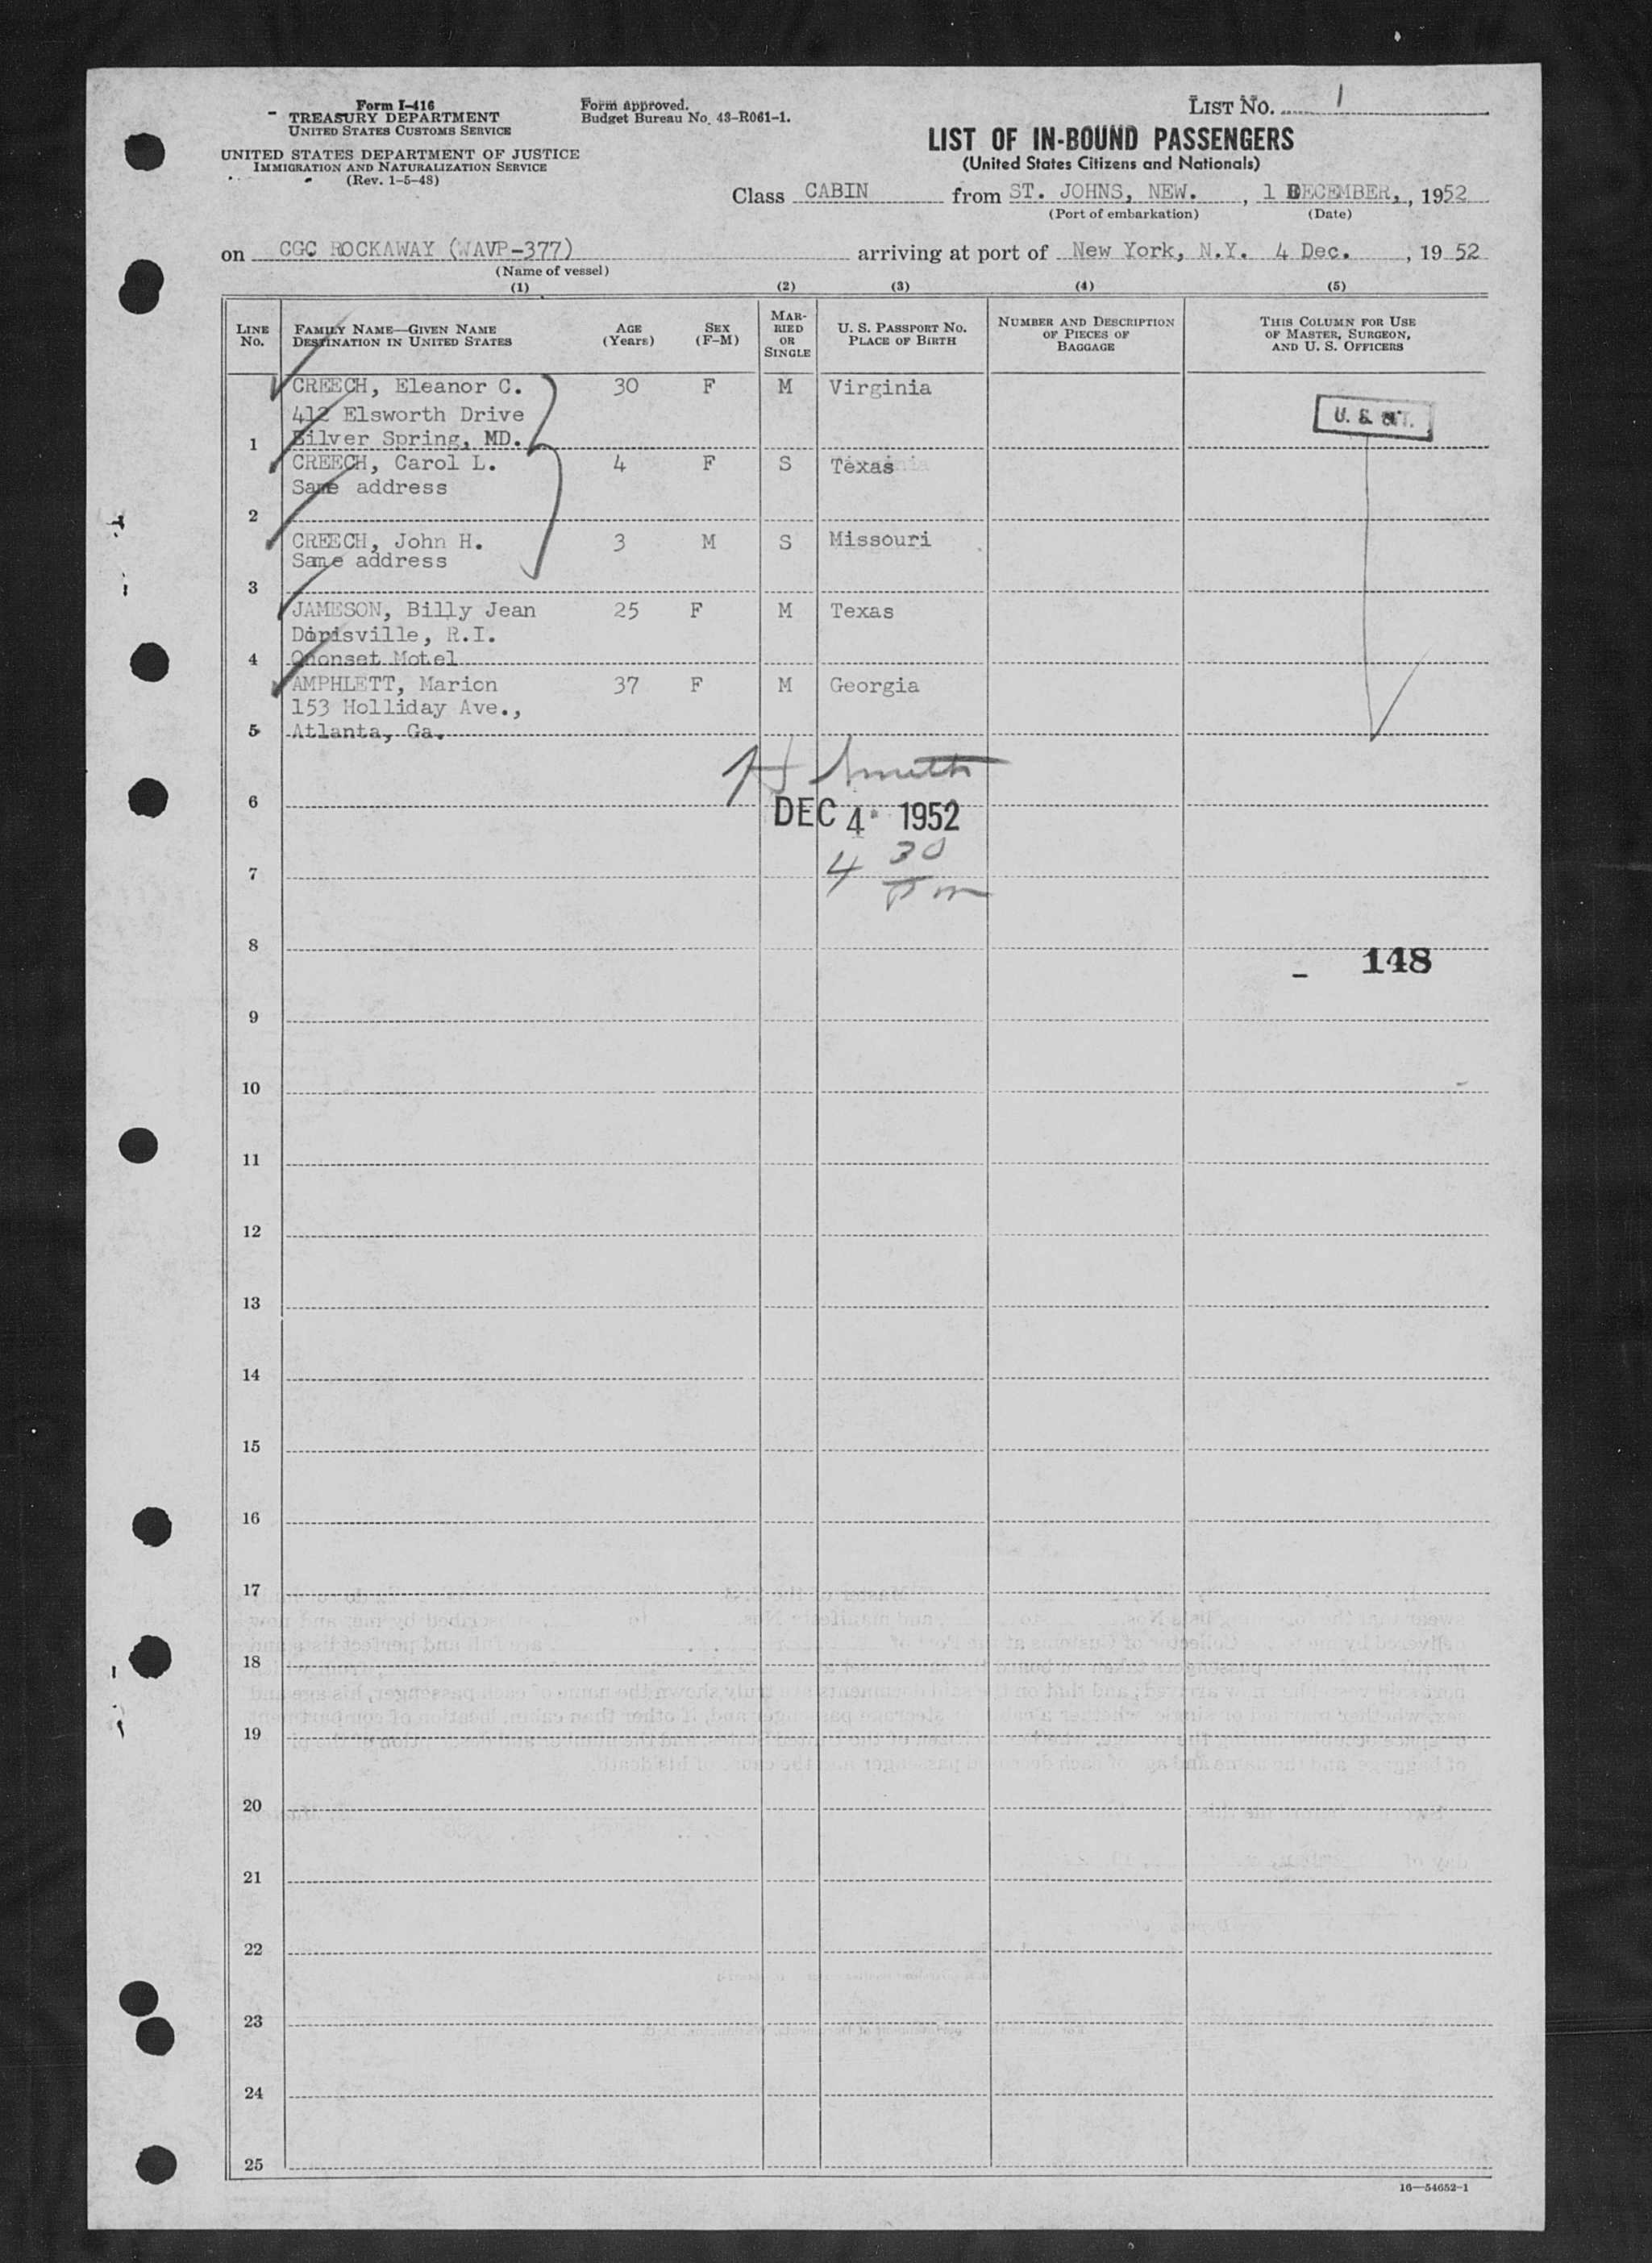 Form I-416
TREASURY DEPARTMENT
UNITED STATES CUSTOMS SERVICE
UNITED STATES DEPARTMENT OF JUSTICE
IMMIGRATION AND NATURALIZATION SERVICE
(Rev. 1-5-48)
Form approved.
Budget Bureau No. 43-R061-1.
LIST NO. 1
LIST OF IN-BOUND PASSENGERS
(United States Citizens and Nationals)
Class CABIN from ST. JOHNS, NEW. , 1 DECEMBER, , 1952
(Port of embarkation) (Date)
on CGC ROCKAWAY (WAVP-377) arriving at port of New York, N.Y. 4 Dec. , 19 52
(Name of vessel)
(1) (2) (3) (4) (5)
LINE NO.
FAMILY NAME—GIVEN NAME
DESTINATION IN UNITED STATES
AGE
(Years)
SEX
(F-M)
MAR-
RIED
OR
SINGLE
U. S. PASSPORT NO.
PLACE OF BIRTH
NUMBER AND DESCRIPTION
OF PIECES OF
BAGGAGE
THIS COLUMN FOR USE
OF MASTER, SURGEON,
AND U. S. OFFICERS
CREECH, Eleanor C. 30 F M Virginia
412 Elsworth Drive
1 Silver Spring, MD.
U. S.
CREECH, Carol L. 4 F S Texas
Same address
2
CREECH, John H. 3 M S Missouri
Same address
3
JAMESON, Billy Jean 25 F M Texas
Dorisville, R.I.
4 Qnonset Motel
AMPHLETT, Marion 37 F M Georgia
153 Holliday Ave.,
5 Atlanta, Ga.
H Smith
6
DEC 4 1952
4 30 pm
7
8
148
9
10
11
12
13
14
15
16
17
18
19
20
21
22
23
24
25
16—54652-1